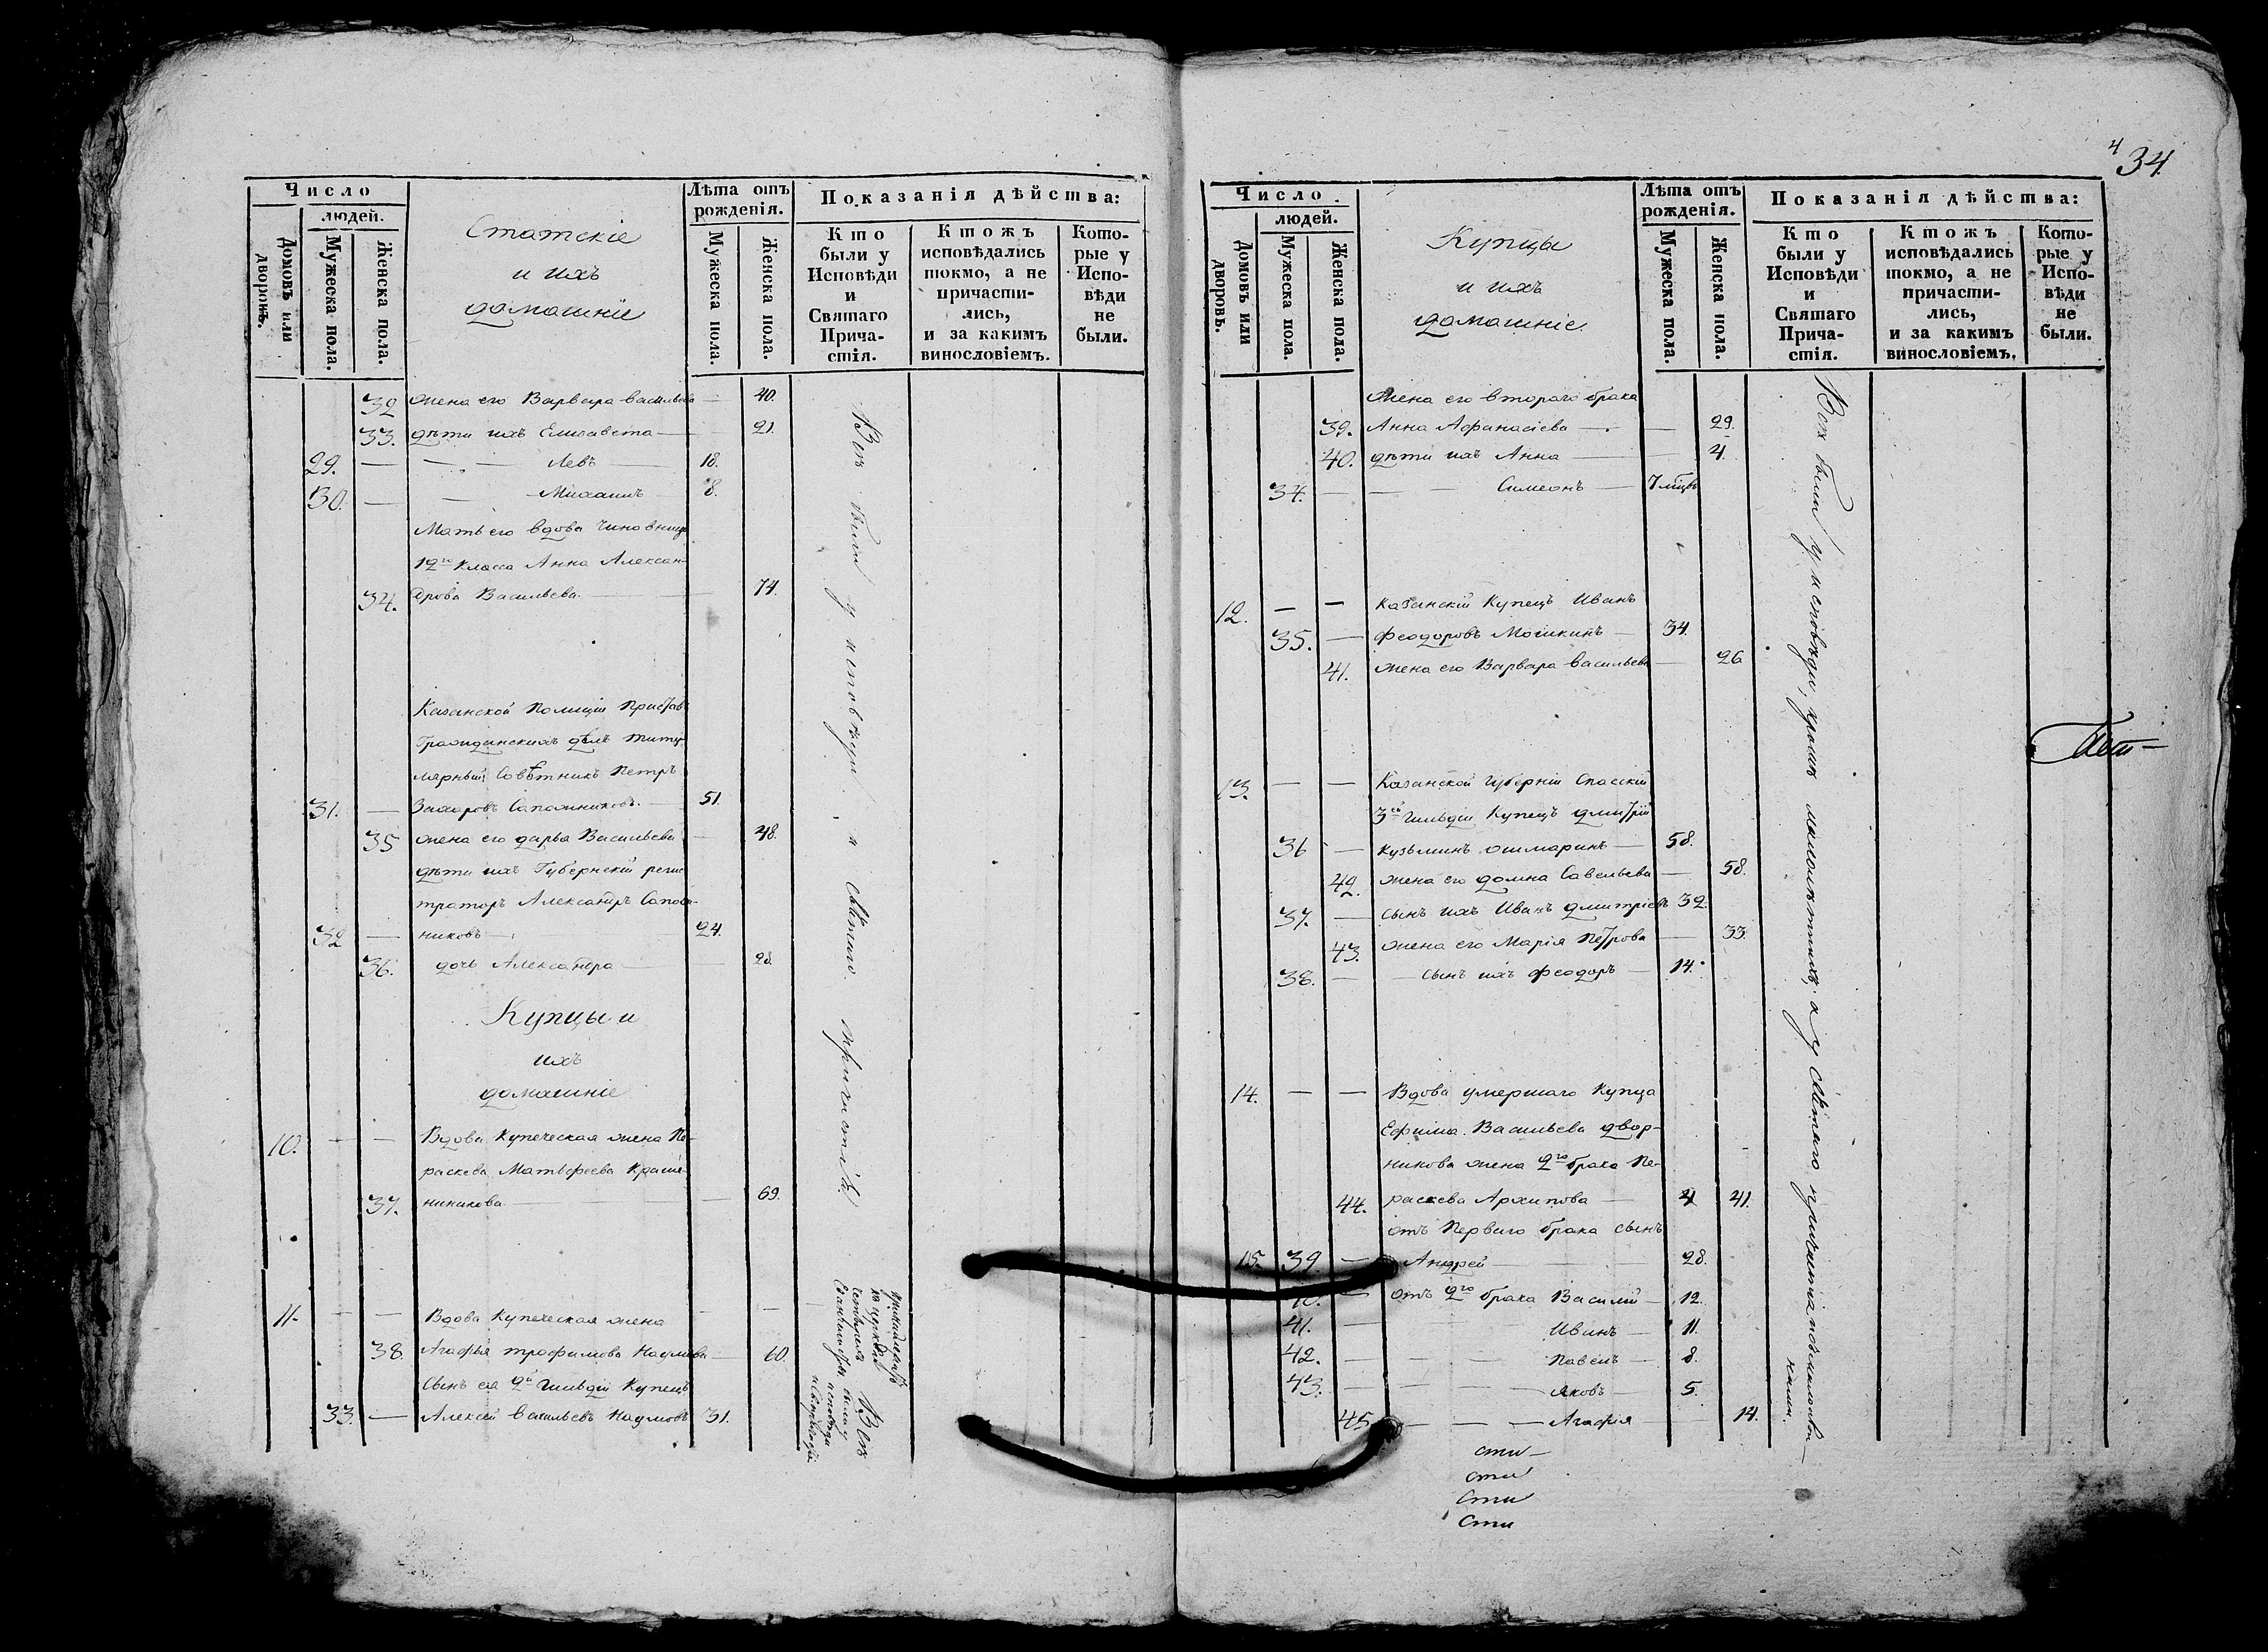 Число
людей.
Домовъ или дворовъ.
Мужеска пола.
Женска пола.
Статскіе
и ихъ
домашніе
Лѣта отъ
рожденія.
Мужеска пола.
Женска пола.
Показанія дѣйства:
Кто
были у
Исповѣди
и
Святаго
Прича-
стія.
Ктожъ
исповѣдались
токмо, а не
причасти-
лись,
и за какимъ
винословіемъ.
Кото-
рые у
Испо-
вѣди
не
были.
32 жена его Варвара Васильева — 40.
33. дѣти ихъ Елисавета — 21.
29. — — — Левъ — 18.
30. — — Михаилъ — 8.
Мать его вдова Чиновница
12го класса Анна Алексан-
34. дрова Васильева — 74.
Казанской Полиціи Приставъ
Гражданскихъ дѣлъ Титу-
лярный Совѣтникъ Петръ
31. — Захаровъ Сапожниковъ. — 51.
35 жена его Дарья Васильева — 48.
дѣти ихъ Губернскій регис-
траторъ Александръ Сапож-
32 — никовъ — 24.
36. дочь Александра — 28.
Купцы и
ихъ
домашніе
10. — — Вдова Купеческая жена Па-
раскева Матвѣева Краше-
37. нинникова — 69.
11. — — Вдова Купеческая жена — —
38. Агафья Трофимова Наумова — 60.
Сынъ ея 2й Гильдіи Купецъ
33. — Алексѣй Васильевъ Наумовъ 31.
Всѣ были у исповѣди и святаго причастія.
Всѣ
были у
исповѣди
34.
Число
людей.
Домовъ или дворовъ.
Мужеска пола.
Женска пола.
Купцы
и ихъ
домашніе
Лѣта отъ
рожденія.
Мужеска пола.
Женска пола.
Показанія дѣйства:
Кто
были у
Исповѣди
и
Святаго
Прича-
стія.
Ктожъ
исповѣдались
токмо, а не
причасти-
лись,
и за какимъ
винословіемъ.
Кото-
рые у
Испо-
вѣди
не
были.
Жена его втораго брака
39. Анна Афанасіева — — 29.
40. дѣти ихъ Анна — 4.
34. — — — Симеонъ — 7 мѣцвъ
12. — — Казанскій Купецъ Иванъ
35. — Феодоровъ Мошкинъ — 34.
41. жена его Варвара Васильева — 26
13. — — Казанской Губерніи Спасскій
3ей Гильдіи Купецъ Дмитрій
36 — Кузьминъ Ошмаринъ — 58.
42. жена его Домна Савельева — 58.
37. — сынъ ихъ Иванъ Дмитріевъ 32.
43. жена его Марія Петрова — 33.
38. — — сынъ ихъ Феодоръ — 14.
14. — — Вдова умершаго Купца
Ефима Васильева Двор-
никова жена 2го брака Па-
44. раскева Архипова — 41.
отъ Перваго брака сынъ
15. 39. — Андрей — 28.
40. — отъ 2го брака Василій — 12.
41. — Иванъ — 11.
42. — — — Павелъ — 8.
43. — — — — Яковъ — 5.
45. — — — Агафія 14.
Всѣ были у исповѣди, кромѣ малолѣтнихъ; а у святаго причастія
сти—
сти
сти
сти